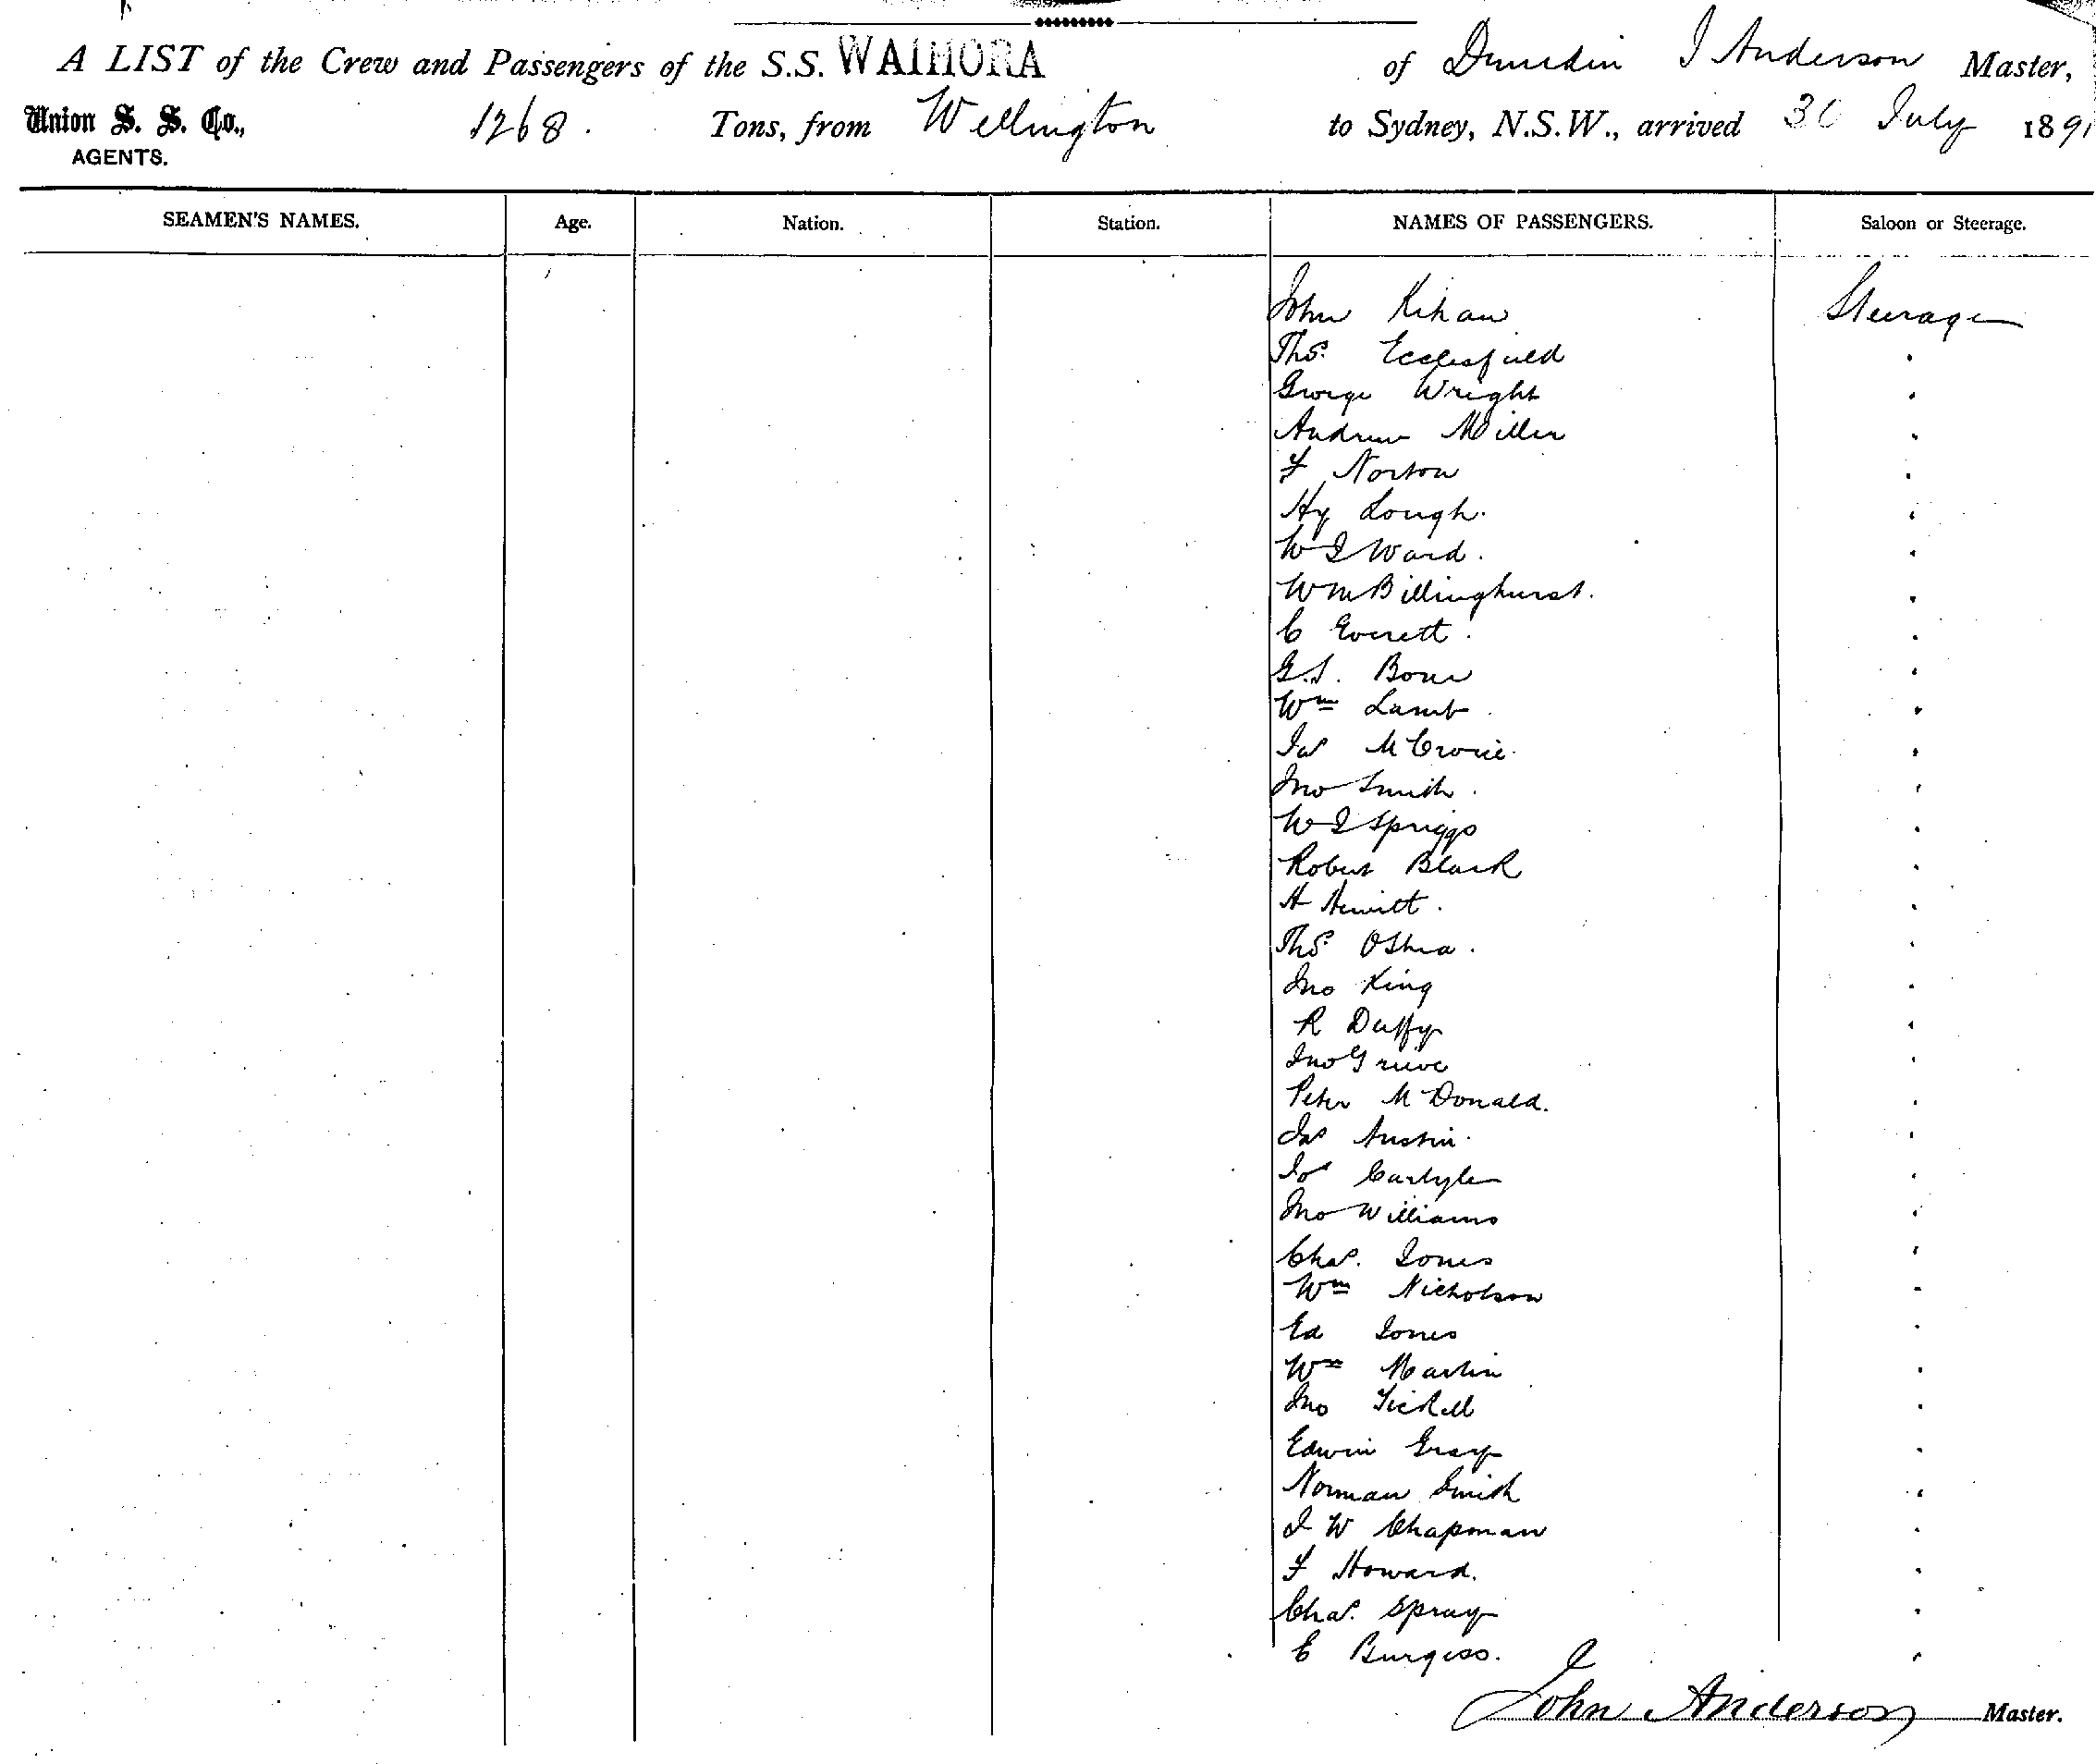 A LIST of the Crew and Passengers of the S.S. WAIHORA of Dunedin J Anderson Master,
Union S. S. Co., 1268. Tons, from Wellington to Sydney, N.S.W., arrived 30 July 1891
AGENTS.
SEAMEN'S NAMES. Age. Nation. Station. NAMES OF PASSENGERS. Saloon or Steerage.
John Kihau Steerage
Thos. Ecclesfield
George Wright
Andrew Miller
F Norton
Hy Lough.
W J Ward.
Wm Billinghurst.
C Everett.
G.S. Bone
Wm Lamb.
Jas McCrorie.
Jno Smith.
W J Spriggs
Robert Black
H Hewitt.
Thos. OShea.
Jno King
R Duffy
Jno Grieve
Peter McDonald.
Jas Austin.
Jos Carlyle
Jno Williams
Chas. Jones
Wm Nicholson
Ed Jones
Wm Martin
Jno Tickell
Edwin Gray
Norman Smith
J W Chapman
F Howard.
Chas. Spray
E Burgess.
John Anderson Master.